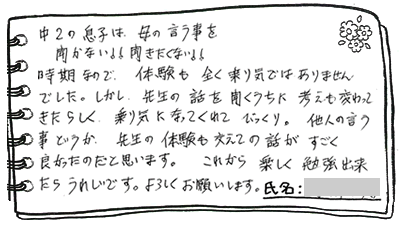 中2の息子は、母の言う事を
聞かない!! 聞きたくない!!
時期なので、体験も全く乗り気ではありません
でした。しかし、先生の話を聞くうちに考えも変わって
きたらしく、乗り気になってくれてびっくり。他人の言う
事どうか、先生の体験も交えての話がすごく
良かったのだと思います。これから楽しく勉強出来
たらうれしいです。よろしくお願いします。氏名: